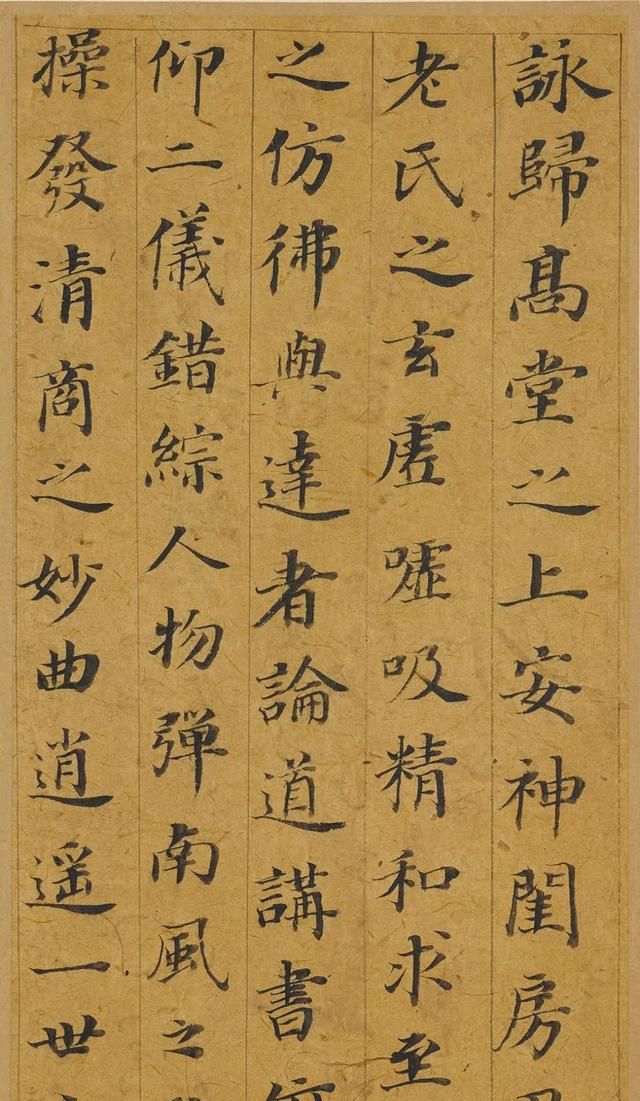 詠歸髙堂之上安神閨房
老氏之玄虛嘘吸精和求至
之仿彿與達者論道講書
仰二儀錯綜人物彈南風之
操發清商之妙曲逍遥一世